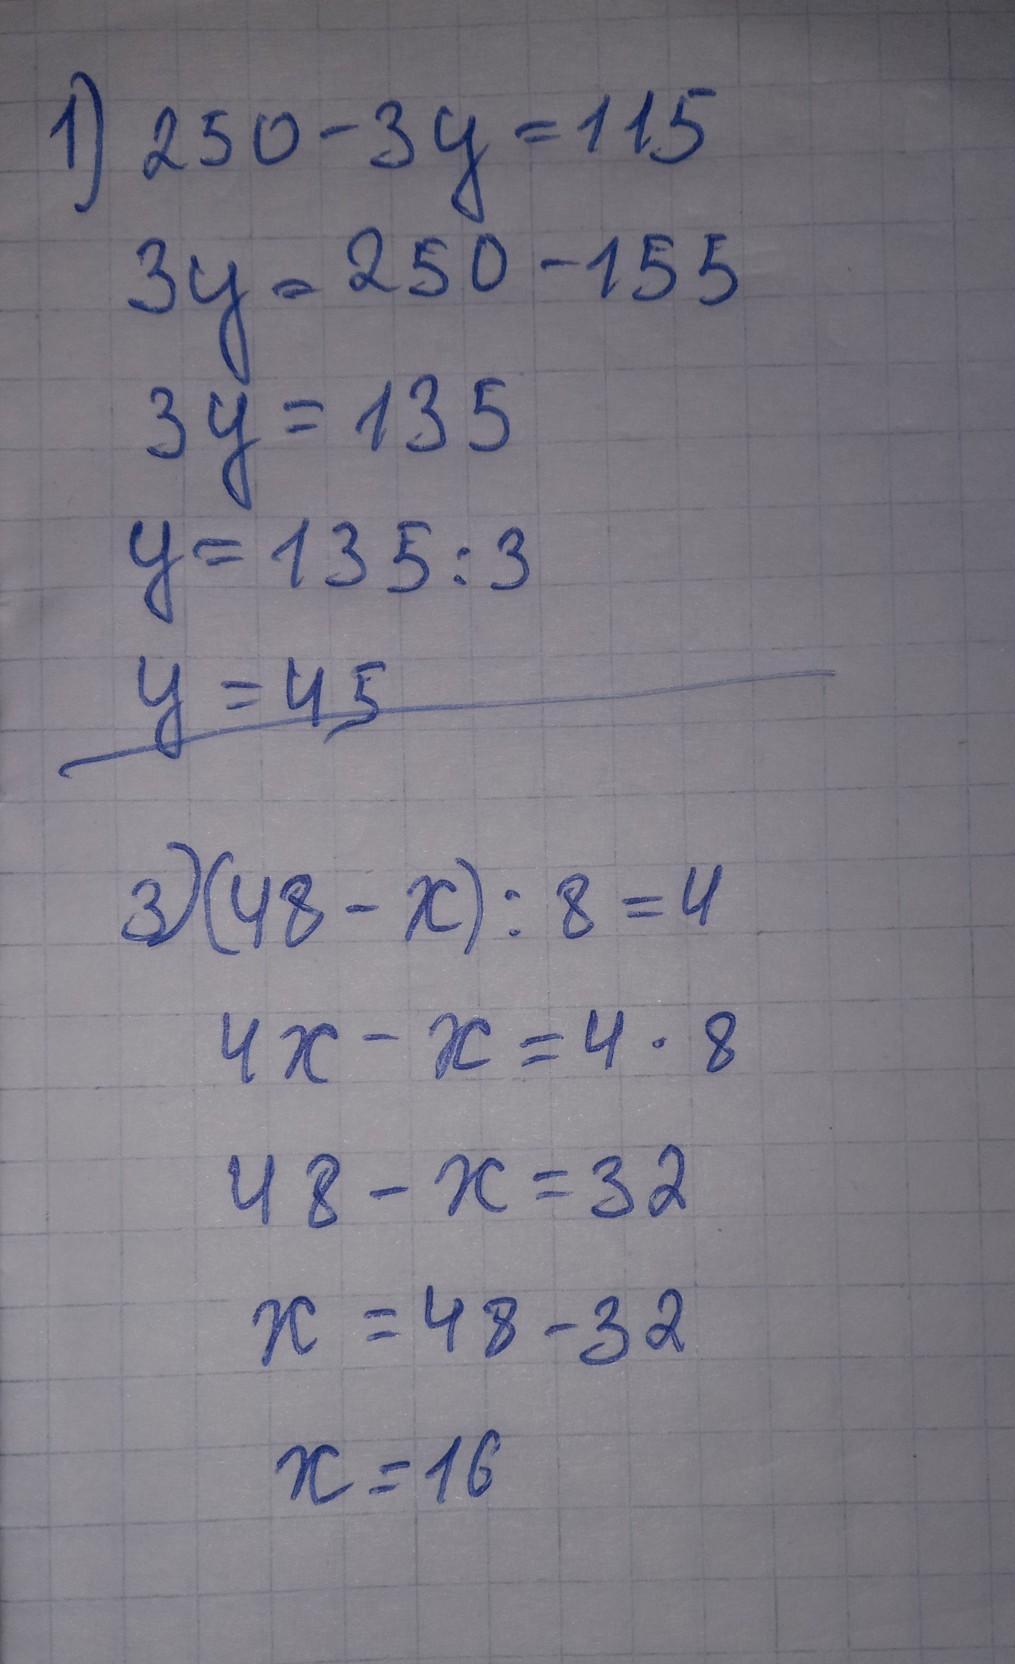 1) 250-3y=115
3y=250-155
3y=135
y=135:3
y=45
3)(48-x):8=4
4x-x=4·8
48-x=32
x=48-32
x=16